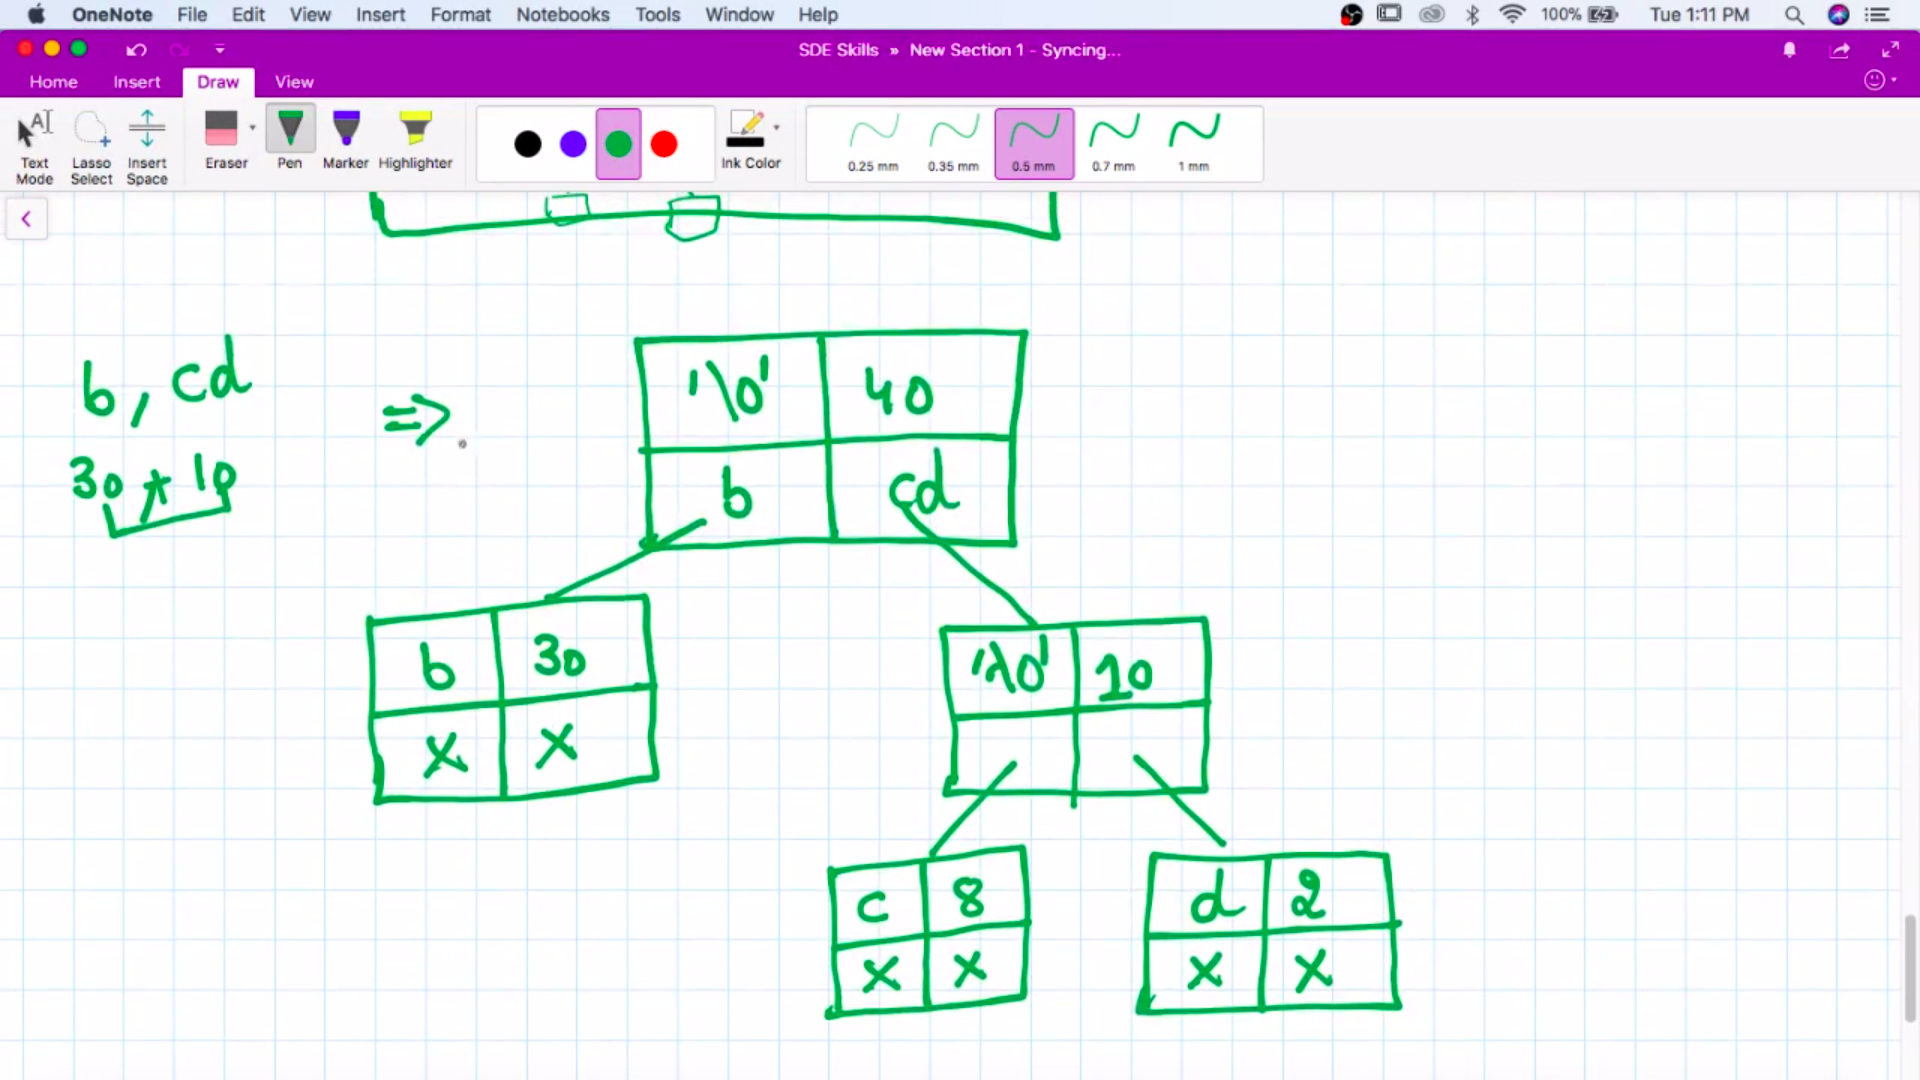 OneNote File Edit View Insert Format Notebooks Tools Window Help 100% Tue 1:11 PM
SDE Skills » New Section 1 - Syncing...
Home Insert Draw View
Text Mode Lasso Select Insert Space Eraser Pen Marker Highlighter Ink Color 0.25 mm 0.35 mm 0.5 mm 0.7 mm 1 mm
b, cd => '\0' 40
30 + 10 b cd
b 30 '\0' 10
x x
c 8 d 2
x x x x